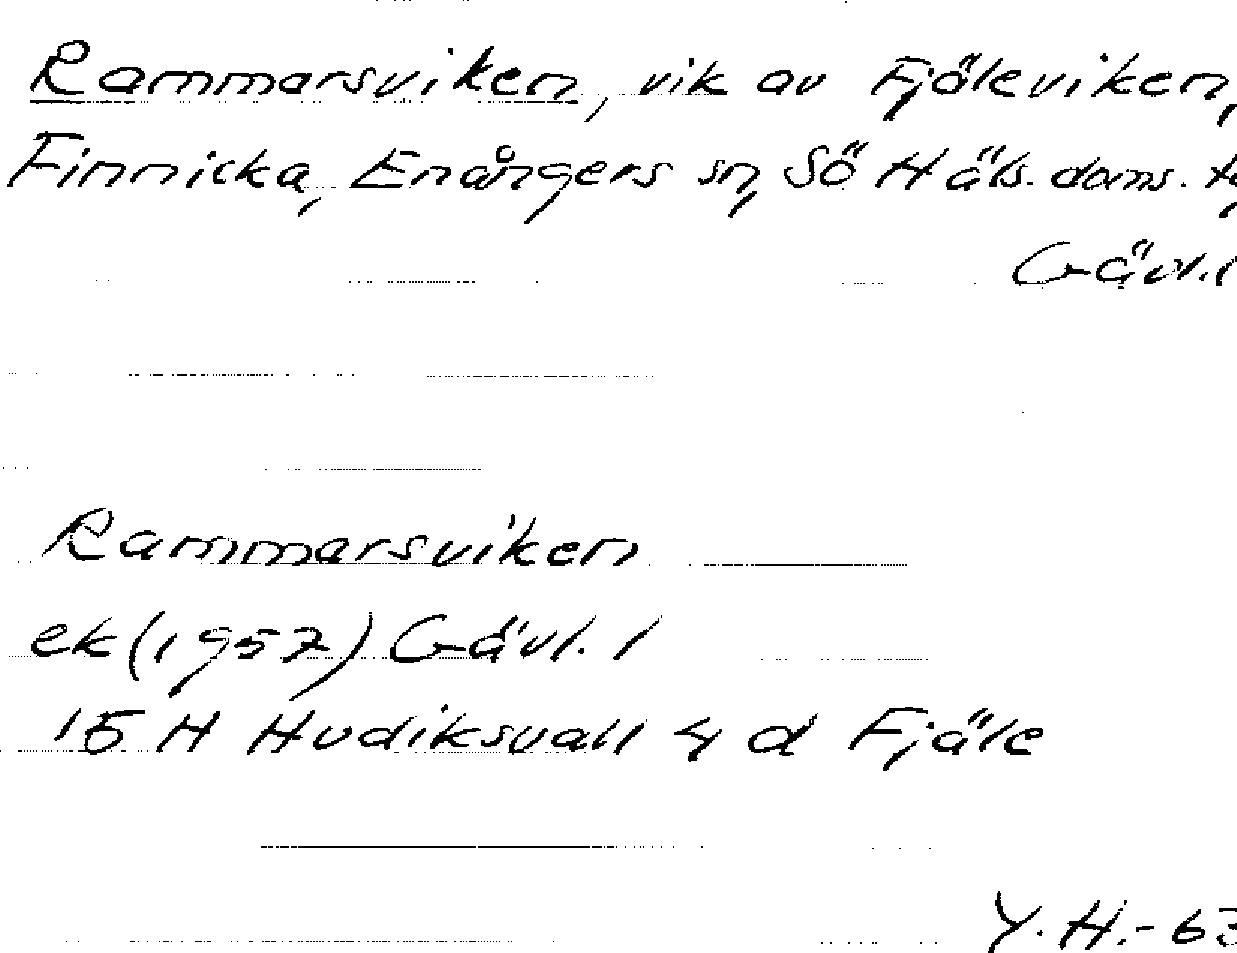 Rammarsviken, vik av Fjäleviken,
Finnicka, Enångers sn, Sö Häls. doms.
Gävl. l
Rammarsviken
ek (1957) Gävl. l
15 H Hudiksvall 4 d Fjäle
Y. H. - 63